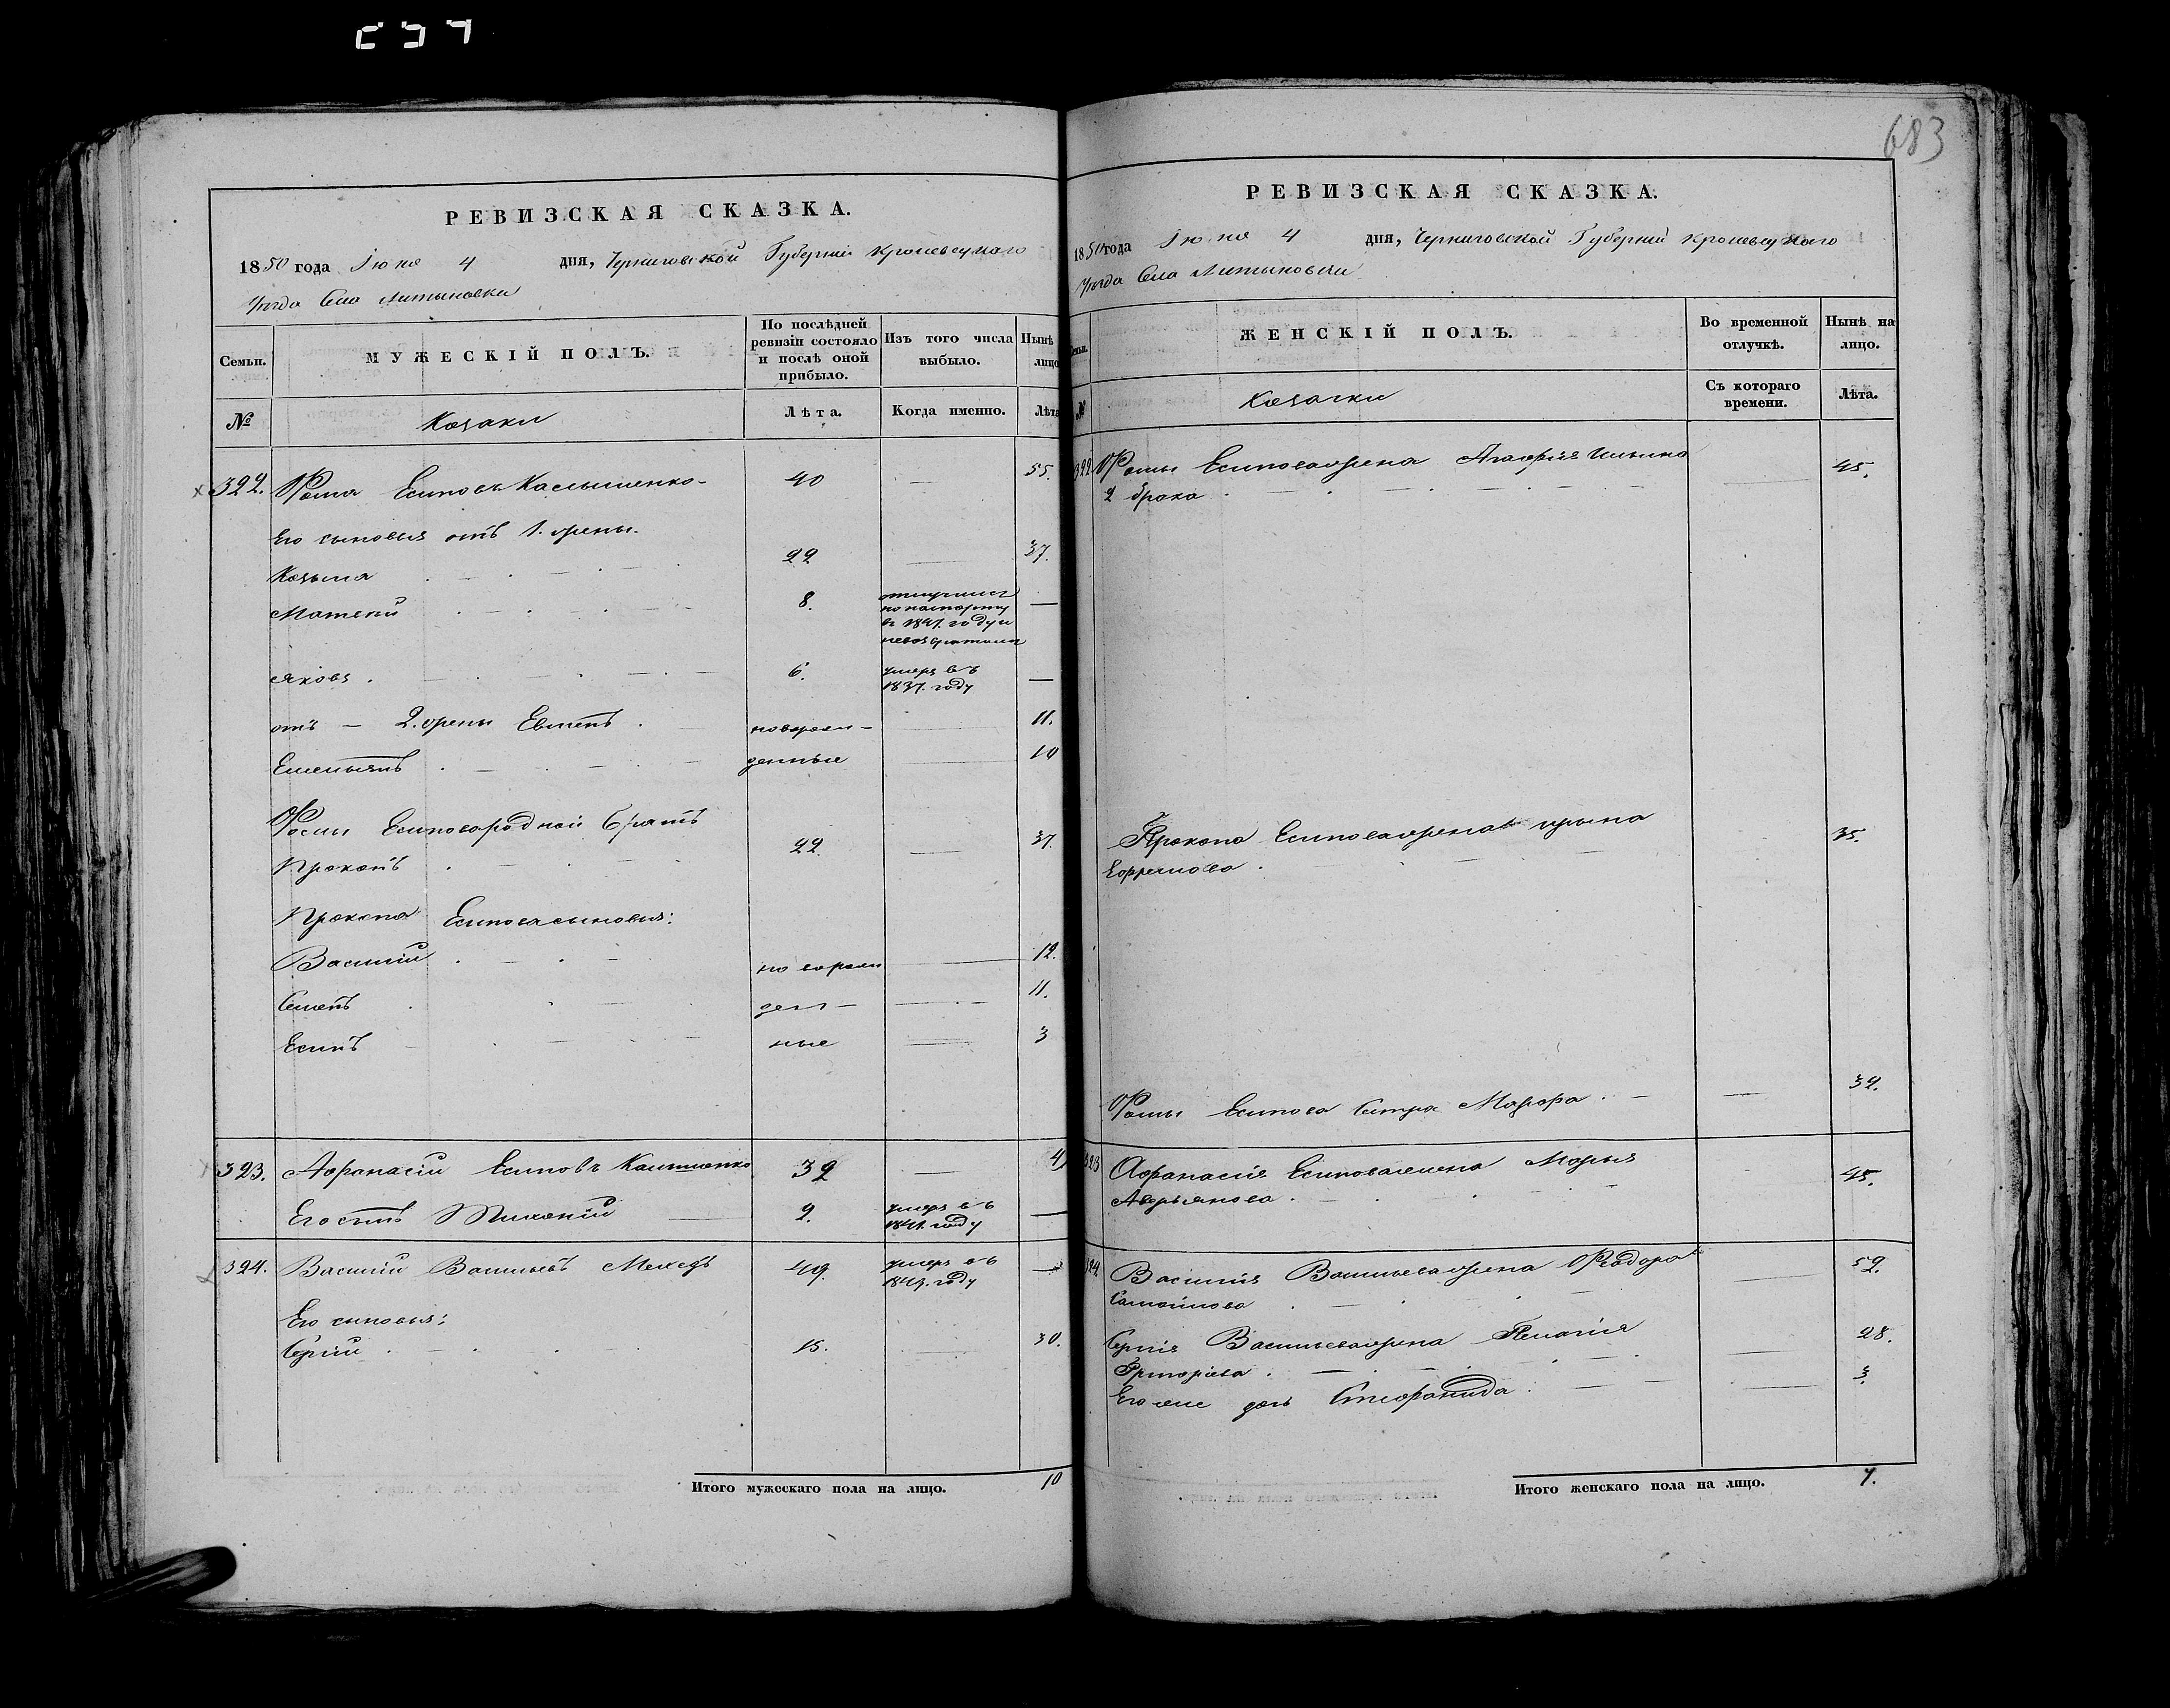 683
РЕВИЗСКАЯ СКАЗКА.
1850 года Іюня 4 дня, Черниговской Губерніи Кролевецкаго
Уѣзда Села Литвиновки
Семьи. МУЖЕСКІЙ ПОЛЪ. По послѣдней ревизіи состояло и послѣ оной прибыло. Изъ того числа выбыло. Нынѣ лицо
№ Козаки Лѣта. Когда именно. Лѣта
322. Фома Есиповъ 40 — 55.
Его сыновья отъ 1. жены.
Козьма 22 — 37.
Матвѣй 8. отлучился
по паспорту
въ году и
невозвратился
Яковъ 6. умеръ въ
1837. году —
отъ — 2. жены Евменъ новорож— 11.
Емельянъ денные — 10
Фомы Есипова родной братъ
Прокопъ 22. — 37.
Прокопа Есипова сыновья:
Василій новорож — 12.
Семенъ ден— — 11.
Есипъ ные — 3
323. Афанасій Есиповъ 32 —
Его сынъ Тихоній 2. умеръ въ
году —
324. Василій Васильевъ Мехедъ 49. умеръ въ
году —
Его сыновья:
Сергій 15. — 30.
Итого мужескаго пола на лицо. 10
РЕВИЗСКАЯ СКАЗКА.
1850 года Іюня 4 дня, Черниговской Губерніи Кролевецкаго
Уѣзда Села Литвиновки
Семьи. ЖЕНСКІЙ ПОЛЪ. Во временной отлучкѣ. Нынѣ на лицо.
№ Козачки Съ котораго времени. Лѣта.
322 Фомы Есипова жена Агафія Ильина — 45.
2 брака
Прокопа Есипова жена Ирина 35.
Ефремова
Фомы Есипова сестра Марфа — 32.
323 Афанасія Есипова жена Марья 45.
Аверьянова
324 Василія Васильева жена Федора — 52.
Самойлова
Сергія Васильева жена Пелагія 28.
Григорьева —
Его же дочь Стефанида — 3.
Итого женскаго пола на лицо. 7.